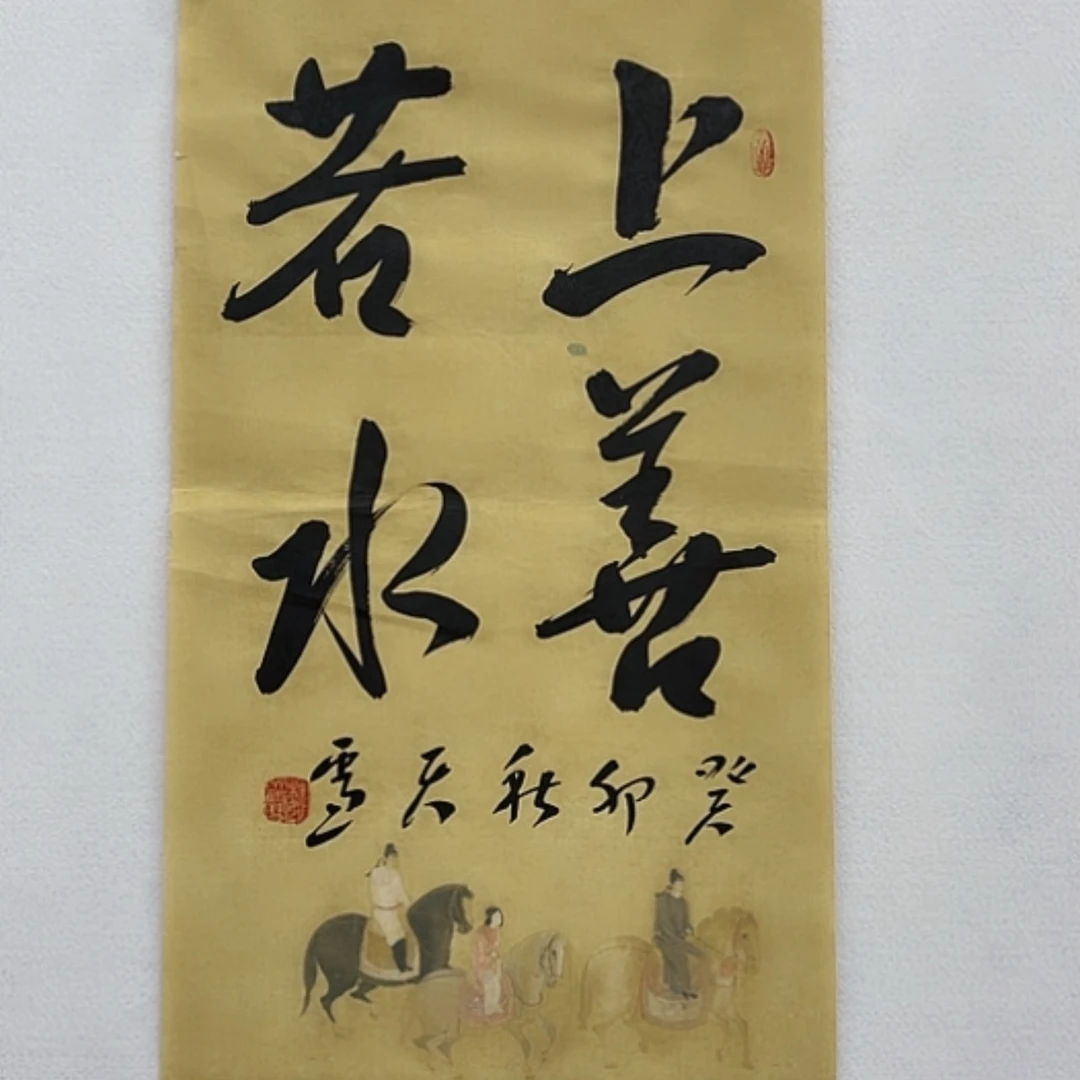 上善
若水
癸卯秋天